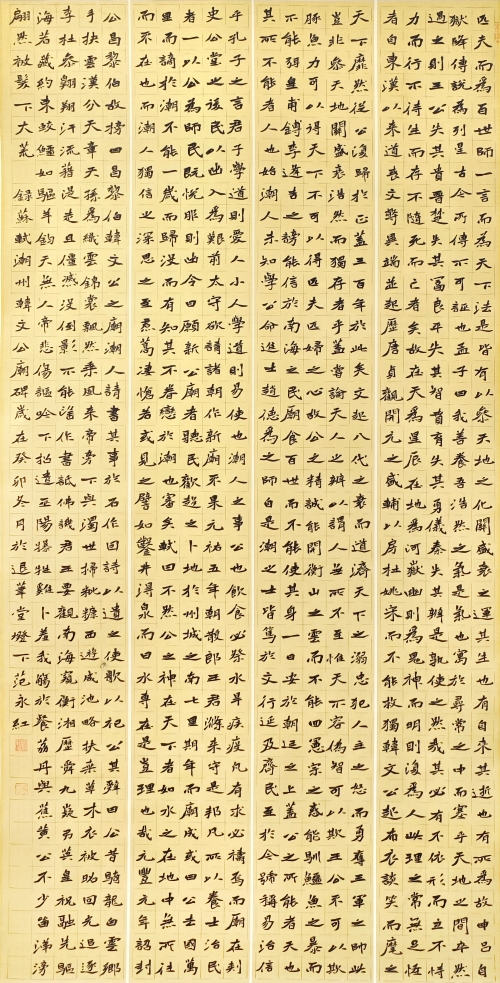 匹夫而為百世師一言而為天下法是皆有以參天地之化關盛衰之運其生也有自來其逝也有所為故申呂自
獄降傳說為列星古今所傳不可誣也孟子曰我善養吾浩然之氣是氣也寓於尋常之中而塞乎天地之間卒然
遇之則王公失其貴晉楚失其富良平失其智賁育失其勇儀秦失其辯是孰使之然哉其必有不依形而立不恃
力而行不待生而存不隨死而亡者矣故在天為星辰在地為河嶽幽則為鬼神而明則復為人此理之常無足怪
者自東漢以來道喪文弊異端並起歷唐貞觀開元之盛輔以房杜姚宋而不能救獨韓文公起布衣談笑而麾之
天下靡然從公復歸於正蓋三百年於此矣文起八代之衰而道濟天下之溺忠犯人主之怒而勇奪三軍之帥此
豈非參天地關盛衰浩然而獨存者乎蓋嘗論天人之辨以謂人無所不至惟天不容偽智可以欺王公不可以欺
豚魚力可以得天下不可以得匹夫匹婦之心故公之精誠能開衡山之雲而不能回憲宗之惑能馴鱷魚之暴而
不能弭皇甫鎛李逢吉之謗能信於南海之民廟食百世而不能使其身一日安於朝廷之上蓋公之所能者天也
其所不能者人也始潮人未知學公命進士趙德為之師自是潮之士皆篤於文行延及齊民至於今號稱易治信
乎孔子之言君子學道則愛人小人學道則易使也潮人之事公也飲食必祭水旱疾疫凡有求必禱焉而廟在刺
史公堂之後民以出入為艱前太守欲請諸朝作新廟不果元祐五年朝散郎王君滌來守是邦凡所以養士治民
者一以公為師民既悅服則出令曰願新公廟者聽民歡趨之卜地於州城之南七里期年而廟成或曰公去國萬
里而謫於潮不能一歲而歸沒而有知其不眷戀於潮也審矣軾曰不然公之神在天下者如水之在地中無所往
而不在也而潮人獨信之深思之至焄蒿悽愴若或見之譬如鑿井得泉而曰水專在是豈理也哉元豐元年詔封
公昌黎伯故榜曰昌黎伯韓文公之廟潮人請書其事於石作因詩以遺之使歌以祀公其辭曰公昔騎龍白雲鄉
手抉雲漢分天章天孫為織雲錦裳飄然乘風來帝旁下與濁世掃秕糠西遊咸池略扶桑草木衣被昭回光追逐
李杜參翱翔汗流籍湜走且僵滅沒倒影不能望作書詆佛譏君王要觀南海窺衡湘歷舜九嶷弔英皇祝融先驅
海若藏約束蛟鱷如驅羊鈞天無人帝悲傷謳吟下招遣巫陽犦牲雞卜羞我觴於粲荔丹與蕉黃公不少留涕滂
翩然被髮下大荒錄蘇軾潮州韓文公廟碑歲在癸卯冬月於退華堂燈下范永紅